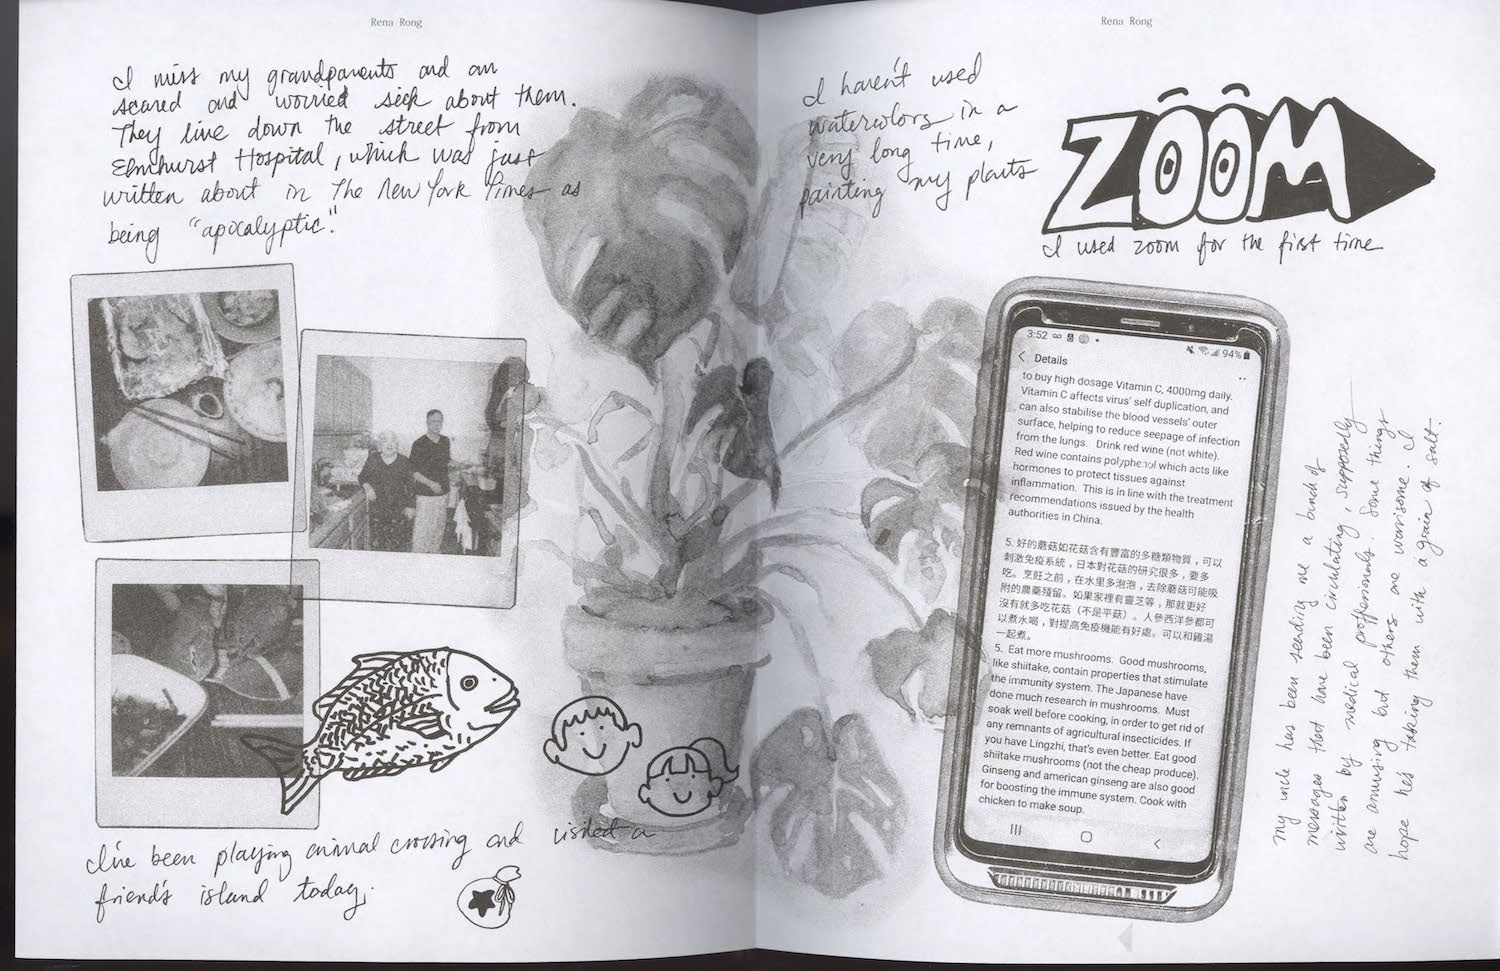 Rena Rong
I miss my grandparents and am
scared and worried sick about them.
They live down the street from
Elmhurst Hospital, which was just
written about in The New York Times as
being "apocalyptic."
I've been playing animal crossing and visited a
friend's island today.
Rena Rong
I haven't used
watercolors in a
very long time,
painting my plants
ZOOM
I used zoom for the first time
3:52
94%
Details
to buy high dosage Vitamin C, 4000mg daily.
Vitamin C affects virus' self duplication, and
can also stabilise the blood vessels' outer
surface, helping to reduce seepage of infection
from the lungs. Drink red wine (not white).
Red wine contains polyphenol which acts like
hormones to protect tissues against
inflammation. This is in line with the treatment
recommendations issued by the health
authorities in China.
5. 好的蘑菇如花菇含有豐富的多糖類物質，可以
刺激免疫系統，日本對花菇的研究很多，要多
吃。烹飪之前，在水里多泡泡，去除蘑菇可能吸
附的農藥殘留。如果家裡有靈芝等，那就更好
沒有就多吃花菇（不是平菇）。人參西洋參都可
以煮水喝，對提高免疫機能有好處。可以和雞湯
一起煮。
5. Eat more mushrooms. Good mushrooms,
like shiitake, contain properties that stimulate
the immunity system. The Japanese have
done much research in mushrooms. Must
soak well before cooking, in order to get rid of
any remnants of agricultural insecticides. If
you have Lingzhi, that's even better. Eat good
shiitake mushrooms (not the cheap produce).
Ginseng and american ginseng are also good
for boosting the immune system. Cook with
chicken to make soup.
my uncle has been sending me a bunch of
messages that have been circulating, supposedly
written by medical proffesionals. Some things
are amusing but others are worrisome. I
hope he's taking them with a grain of salt.